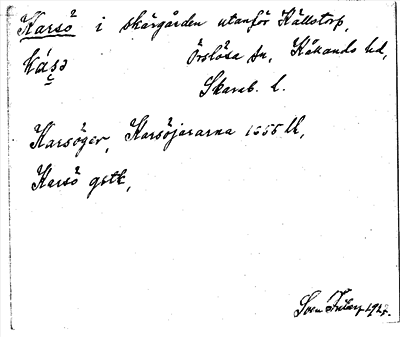 Karsö i skärgården utanför Källstorp,
kásə Örslösa sn, Kållands hd,
Skarab. l.
Karsöger, Karsöjararna 1555 lk,
Karsö gstk,
Sven Friberg 1927.